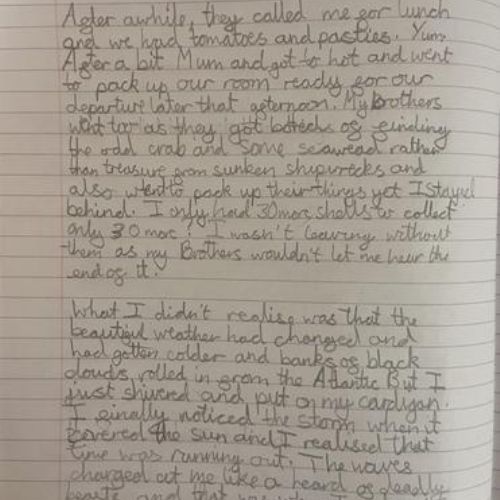 After awhile, they called me for lunch
and we had tomatoes and pasties. Yum.
After a bit Mum and got to hot and went
to pack up our room ready for our
departure later that afternoon. My Brothers
went too as they got boreds of finding
the odd crab and some seaweed rather
than treasure from sunken shipwrecks and
also went to pack up their things yet I stayed
behind. I only had 30 more shells to collect
only 30 more! I wasn't leaving without
them as my Brothers wouldn't let me hear the
end of it.
What I didn't realise was that the
beautiful weather had changed and
had gotten colder and banks of black
clouds rolled in from the Atlantic But I
just shivered and put on my cardigan.
I finally noticed the storm when it
covered the sun and I realised that
time was running out. The waves
charged at me like a heard of deadly
beasts and that was